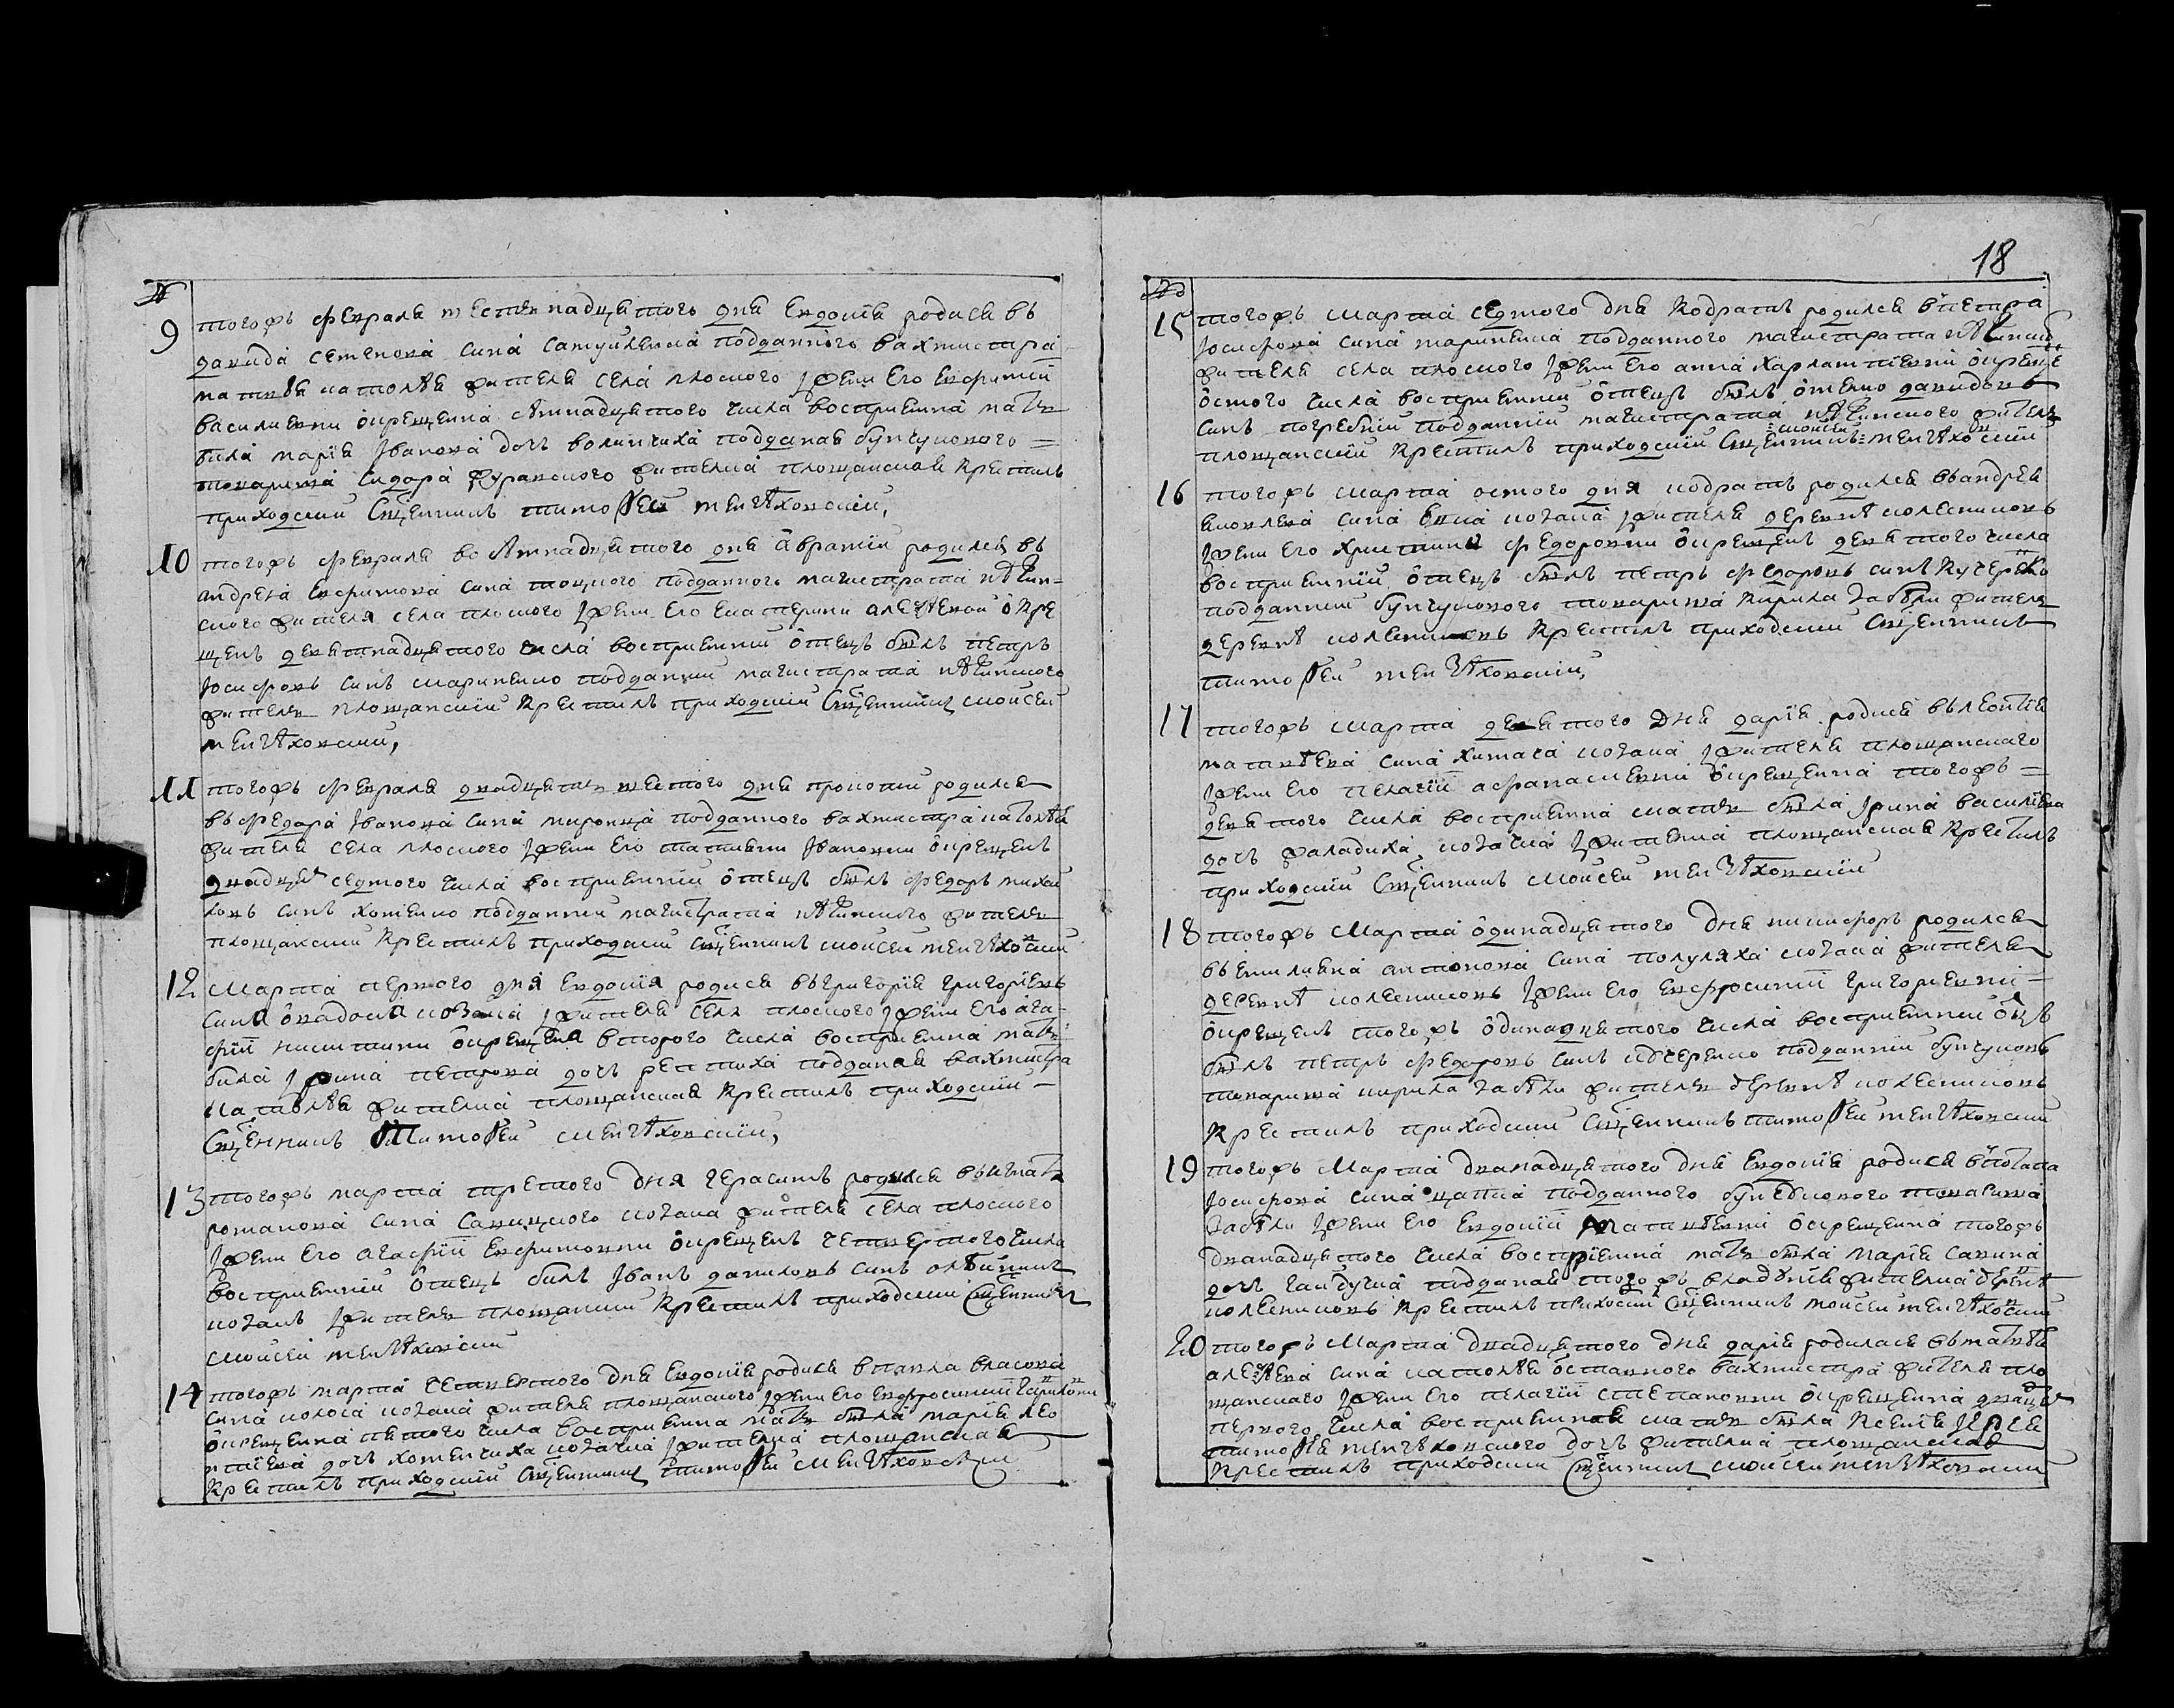 18
№
9 тогожъ февраля шестьнадцятого дня Евдокія родися въ
давида семенова сина самуйленка подданного вахмистра
матвѣя натолѣя жителя села плоского з жени его Евфиміи
василиевни окрещенна сѣмнадцятого числа восприемна мать
била марія Іванова дочь подданая бунчукового =
товариша Сидора жураковского жителка площанская крестилъ
приходскій Священникъ тимоѳей менчѣховскій,
10 тогожъ февраля восѣмнадцятого дня аврамій родился въ
андрея Евфимова сина подданного магистрата нѣжин-
ского жителя села плоского з жени его Екатерини алеѯѣевой окре
щенъ девятнадцятого числа восприемній отецъ билъ петръ
Іосифовъ синъ мариненко подданній магистрата нѣжинского
житель площанскій крестилъ приходскій Священникъ моисей
менчѣховскій,
11 тогожъ февраля двадцять шестого дня прокопій родился
въ федора Іванова сина миронца подданного вахмистра натолѣя
жителя села плоского з жени его татияни Івановни окрещенъ
двадцять седмого числа восприемній отецъ билъ федоръ михай
ловъ синъ хоменко подданній магистрата нѣжинского житель
площанскій крестилъ приходскій священникъ моисей менчѣховскій
12 Марта первого дня Евдокія родися въ григорія григоріевъ
сина козака з жителя села плоского з жени его ага-
фіи никитини окрещена второго числа восприемна мать
била Ірина петрова дочь подданая вахмистра
натолѣя жителка площанская крестилъ приходскій -
Священникъ Тимоѳей менчѣховскій,
13 тогожъ марта третого дня герасимъ родился въ игната
романова сина Савицкого козака жителя села плоского
з жени его агафіи Евфимовни окрещенъ четвертого числа
восприемній отецъ билъ Іванъ даниловъ синъ
козакъ з житель площанскій крестилъ приходскій Священникъ
моисей менчѣховскій
14 тогожъ марта четвертого дня Евдокія родися в павла власова
сина козака жителя площанского з жени его Евфросинии гавриловни
окрещенна пятого числа восприемна мать била марія лео
нтіева дочь хоменчиха козачка з жителка площанская
крестилъ приходскій Священникъ тимоѳей менчѣховскій
№
15 тогожъ марта седмого дня кодратъ родился в петра
Іосифова сина мариненка подданного магистрата нѣжинско
жителя села плоского з жени его анни харлампіевни окреще
осмого числа восприемній отецъ билъ давидовъ
синъ погребній подданній магистрата нѣжинского житель
площанскій крестилъ приходскій Священникъ моисей менчѣховскій
16 тогожъ марта осмого дня кодратъ родился въ андрея
яковлева сина козака з жителя деревнѣ колесниковъ
з жени его христини федоровни окрещенъ девятого числа
восприемній отецъ билъ петръ федоровъ синъ кучеренко
подданній бунчукового товариша кирила забѣли житель
деревнѣ колесниковъ крестилъ приходскій Священникъ
тимоѳей менчѣховскій,
17 тогожъ марта девятого дня дарія родися въ леонтія
матвѣева сина козака з жителя площанского
з жени его пелагіи афанасиевни окрещенна тогожъ =
девятого числа восприемна мать била Ірина василіева
дочь козачка з жителка площанская крестилъ
приходскій Священникъ моисей менчѣховскій
18 тогожъ Марта одинадцятого дня никифоръ родился
въ емилияна антонова сина полуляха козака жителя
деревнѣ колесниковъ з жени его Евфросиніи григориевни -
окрещенъ тогожъ одинадцятого числа восприемній отецъ
билъ петръ федоровъ синъ кучеренко подданній бунчуковъ
товариша кирила забѣли житель деревнѣ колесниковъ
крестилъ приходскій Священникъ тимоѳей менчѣховскій
19 тогожъ Марта дванадцятого дня Евдокія родися в потапа
Іосифова сина цапка подданного бунчукового товариша
забѣли з жени его Евдокіи матвѣевни окрещенна тогожъ
дванадцятого числа восприемна мать била марія савина
дочь гайдучка подданая тогожъ владѣнія жителка деревнѣ
колесниковъ крестилъ приходскій Священникъ моисей менчѣховскій
20 тогожъ Марта двадцятого дня дарія родилася въ матвѣя
алеѯѣева сина натолѣя оставного вахмистра жителя пло
щанского з жени его пелагіи степановни окрещенна двадцять
первого числа восприемная мать била ксенія Іерея
тимоѳея менчѣховского дочь жителка площанская
крестилъ приходскій Священникъ моисей менчѣховскій